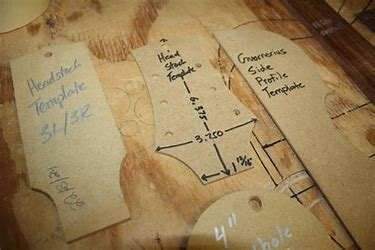 Headstock
Template
3L/3R
Head
Stock
Template
6.375
3.750
1 13/16
Guarnerius
Side
Profile
Template
4"
hole